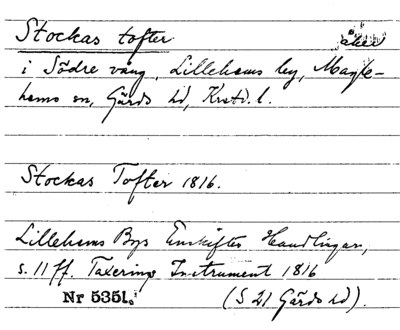 Stockas tofter åker
i Södre vång, Lillehems by, Magle-
hems sn, Gärds hd, Krstd. l.
Stockas Tofter 1816.
Lillehems Bys Enskiftes Handlingar,
s. 11 ff. Taxerings Instrument 1816
Nr 5351. (S 21 Gärds hd).